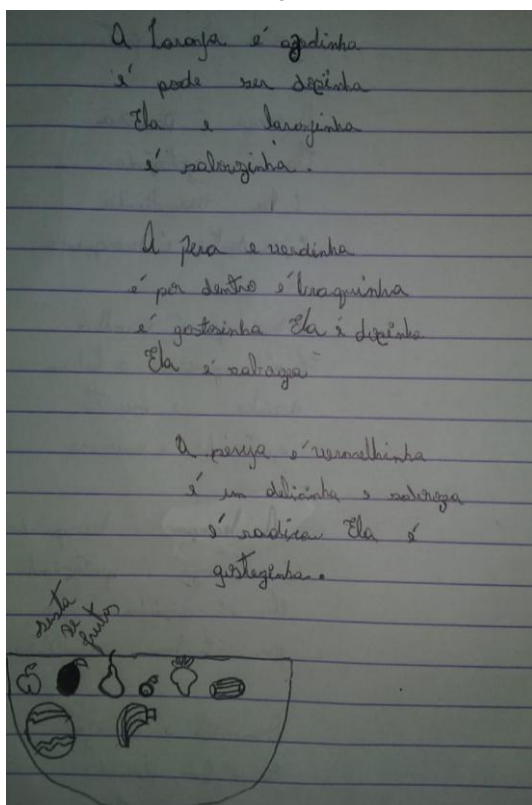 A Laranja é azedinha
é pode ser doçinha
Ela e laranjinha
é saborozinha.
A Pera e verdinha
é por dentro é braquinha
é gostosinha Ela é doçinha
Ela é
A é vermelhinha
é um deliçinha e saboroza
é Ela é
gostozinha.
sesta
de
frutas